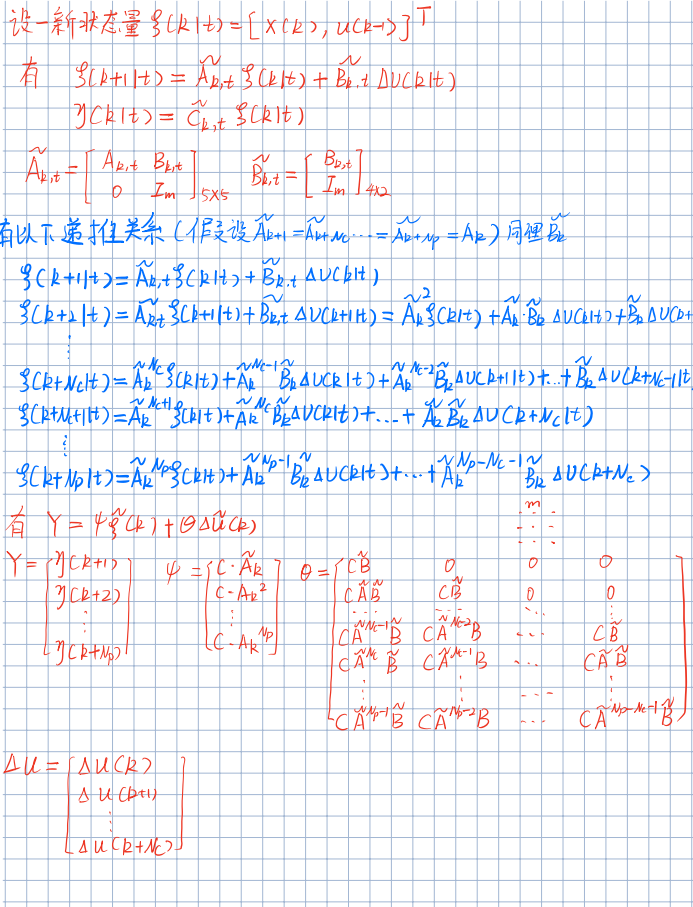 设一新状态量 ξ(k|t) = [x(k), u(k-1)]^T
有 ξ(k+1|t) = Ã_{k,t} ξ(k|t) + B̃_{k,t} ΔU(k|t)
η(k|t) = C̃_{k,t} ξ(k|t)
Ã_{k,t} = [A_{k,t} B_{k,t}; 0 I_m]_{5×5} B̃_{k,t} = [B_{k,t}; I_m]_{4×2}
有以下递推关系 (假设 Ã_{k+1} = Ã_{k+Nc} ... = Ã_{k+Np} = A_k) 同理 B̃_k
ξ(k+1|t) = Ã_{k,t} ξ(k|t) + B̃_{k,t} ΔU(k|t)
ξ(k+2|t) = Ã_{k,t} ξ(k+1|t) + B̃_{k,t} ΔU(k+1|t) = Ã_k^2 ξ(k|t) + Ã_k·B̃_k ΔU(k|t) + B̃_k ΔU(k+
⋮
ξ(k+Nc|t) = Ã_k^{Nc} ξ(k|t) + Ã_k^{Nc-1} B̃_k ΔU(k|t) + Ã_k^{Nc-2} B̃_k ΔU(k+1|t) + ... + B̃_k ΔU(k+Nc-1|t
ξ(k+Nc+1|t) = Ã_k^{Nc+1} ξ(k|t) + Ã_k^{Nc} B̃_k ΔU(k|t) + ... + Ã_k B̃_k ΔU(k+Nc|t)
⋮
ξ(k+Np|t) = Ã_k^{Np} ξ(k|t) + Ã_k^{Np-1} B̃_k ΔU(k|t) + ... + Ã_k^{Np-Nc-1} B̃_k ΔU(k+Nc)
m
有 Y = ψξ̃(k) + ΘΔũ(k)
Y = [η(k+1); η(k+2); ⋮; η(k+Np)] ψ = [C·Ã_k; C·A_k^2; ⋮; C·A_k^{Np}] Θ = [CB̃ 0 0 0; CÃB̃ CB̃ 0 0; ... ... ⋱ ⋮; CÃ^{Nc-1}B̃ CÃ^{Nc-2}B ... CB̃; CÃ^{Nc}B̃ CÃ^{Nc-1}B ... CÃB̃; ⋮ ⋮ ... ⋮; CÃ^{Np-1}B̃ CÃ^{Np-2}B ... CÃ^{Np-Nc-1}B̃]
ΔU = [ΔU(k); ΔU(k+1); ⋮; ΔU(k+Nc)]